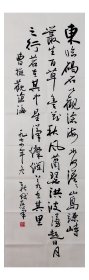 東臨碣石以觀滄海水何澹澹山島竦峙
叢生百草豐茂秋風蕭瑟洪波涌起日月
之行若出其中星漢燦爛若出其里
曹操觀滄海